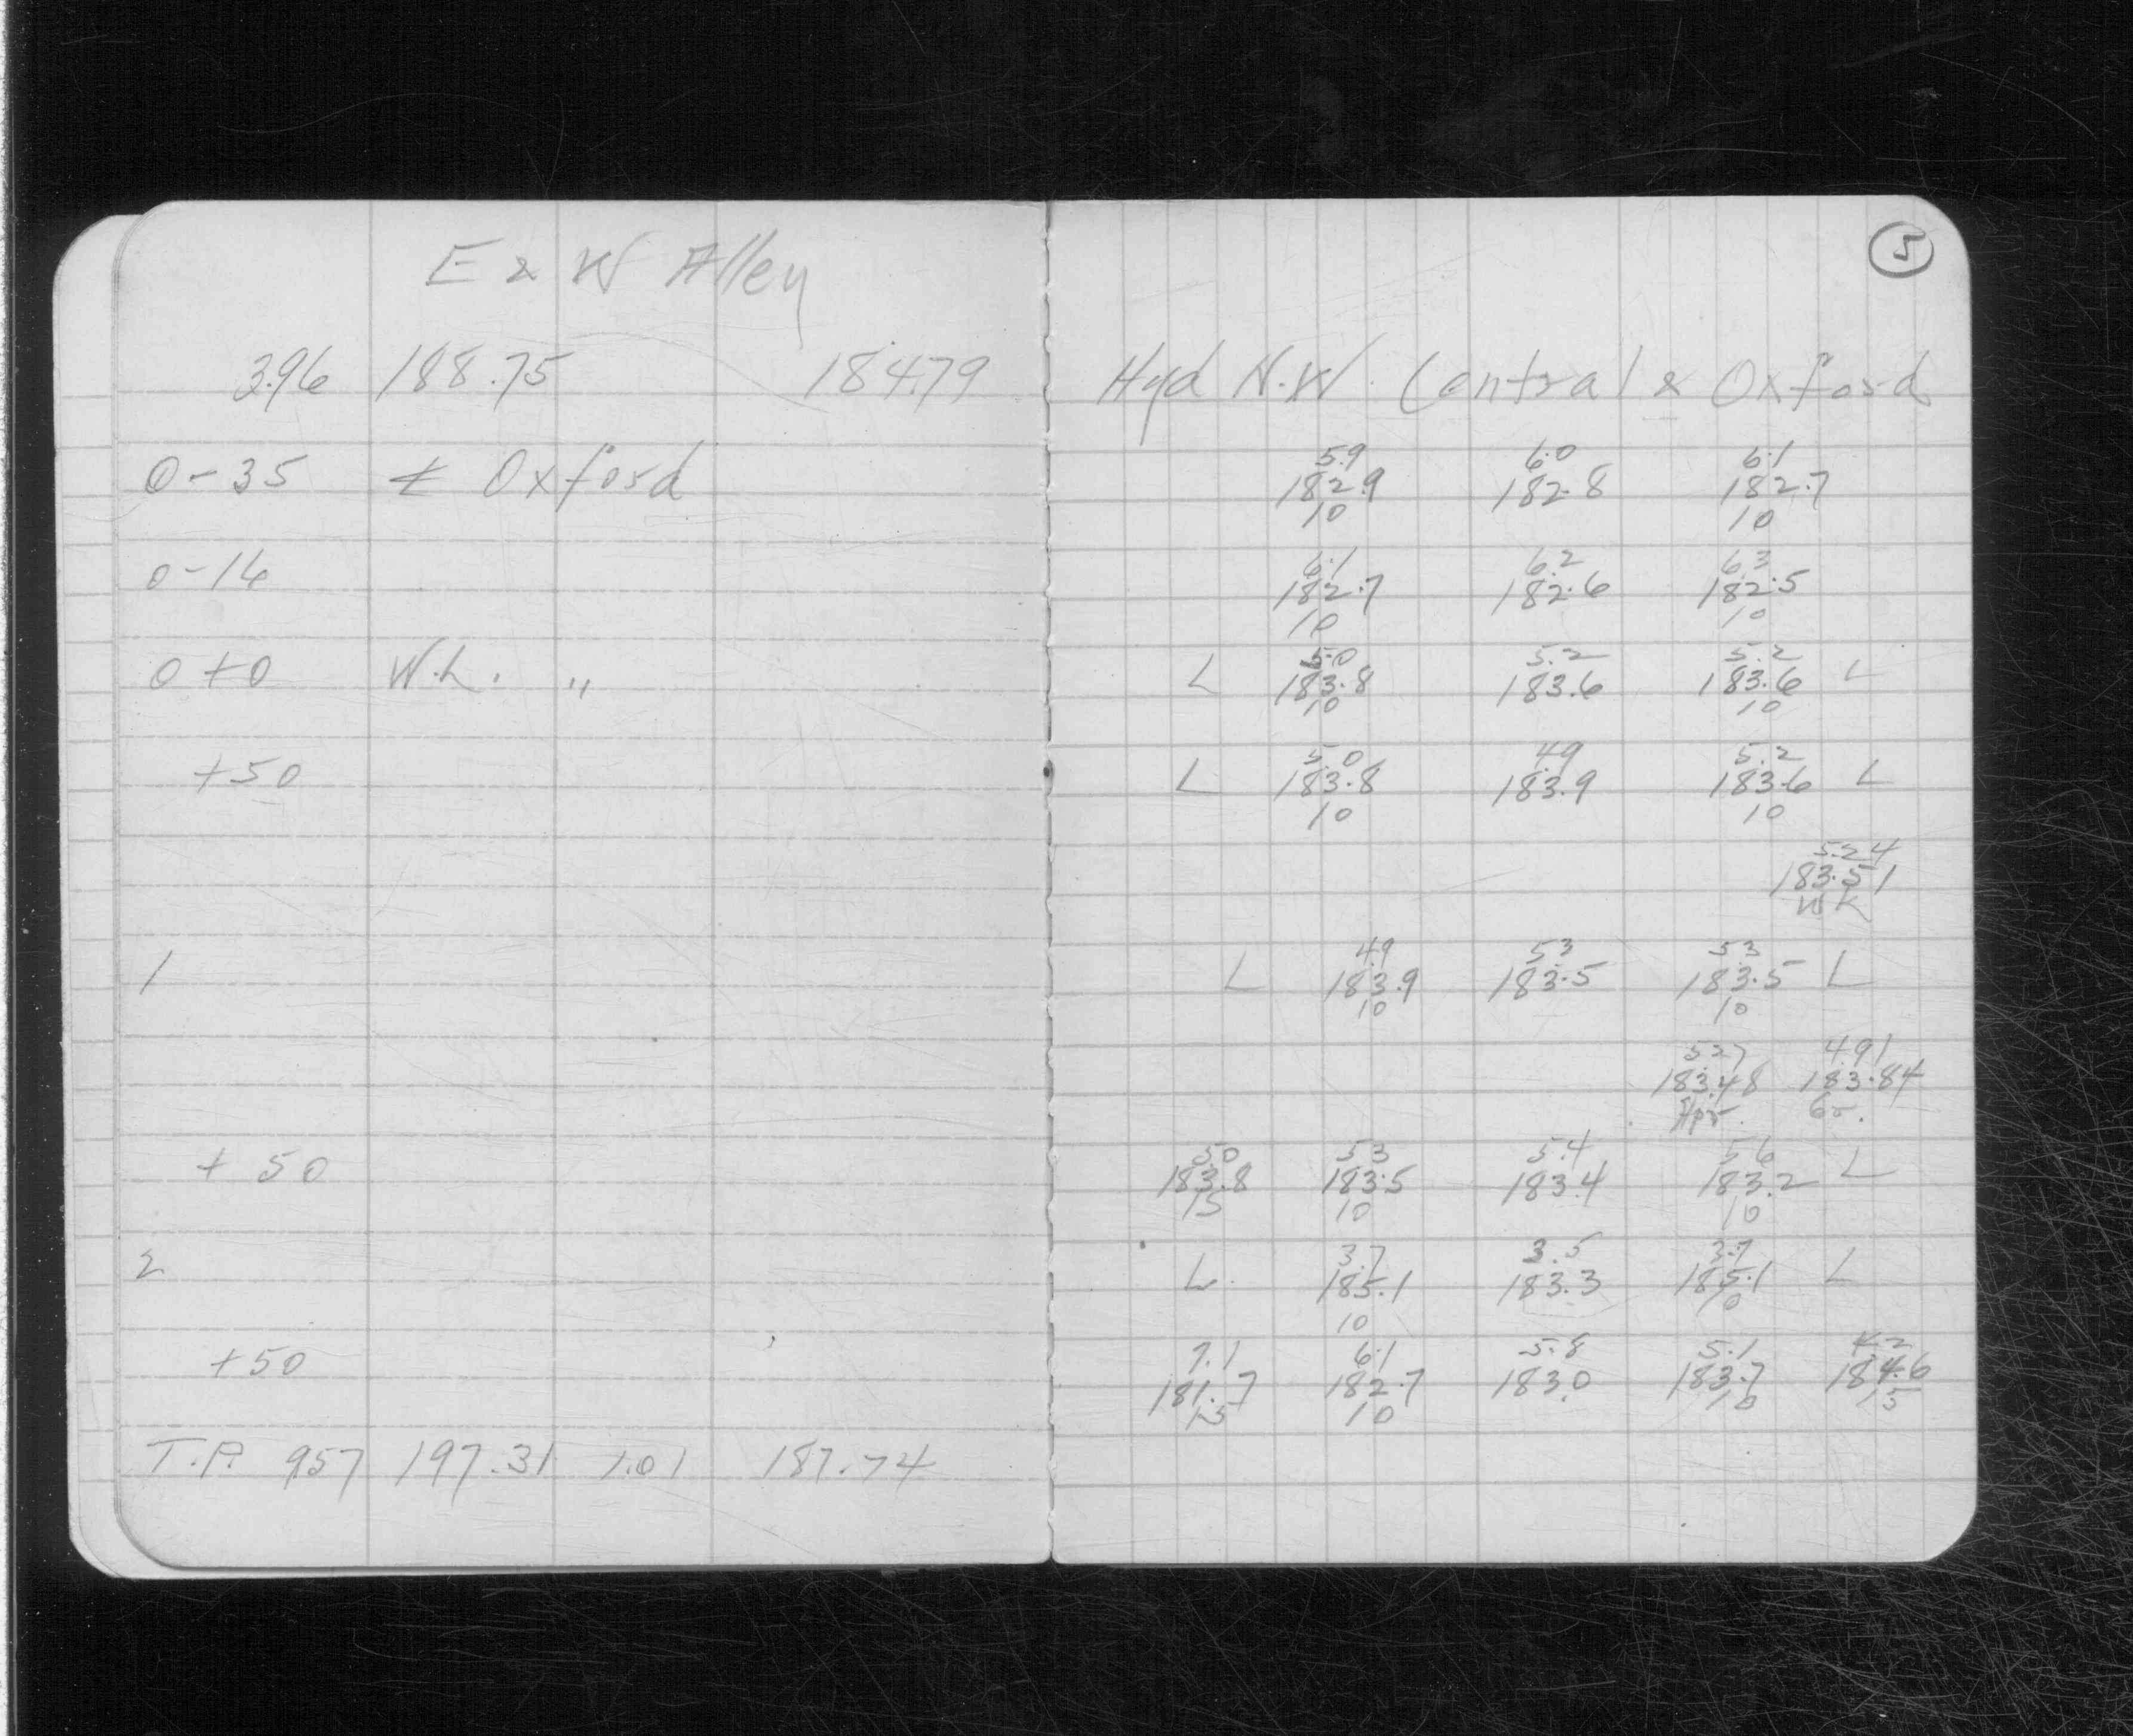 5
E & W Alley
3.96 188.75 184.79 Hyd N.W. Central & Oxford
5.9 6.0 6.1
0-35 ⅊ Oxford 182.9 182.8 182.7
10 10
6.1 6.2 6.3
0-14 182.7 182.6 182.5
10 10
5.0 5.2 5.2
0+0 W.L. " L 183.8 183.6 183.6 L
10 10
5.0 4.9 5.2
+50 L 183.8 183.9 183.6 L
10 10
5.24
183.51
WK
4.9 5.3 5.3
1 L 183.9 183.5 183.5 L
10 10
5.27 4.91
183.48 183.84
Apr.
5.0 5.3 5.4 5.6
+50 183.8 183.5 183.4 183.2 L
15 10 10
3.7 3.5 3.7
2 L 185.1 183.3 185.1 L
10 10
7.1 6.1 5.8 5.1 4.2
+50 181.7 182.7 183.0 183.7 184.6
15 10 10 15
T.P. 9.57 197.31 1.01 187.74